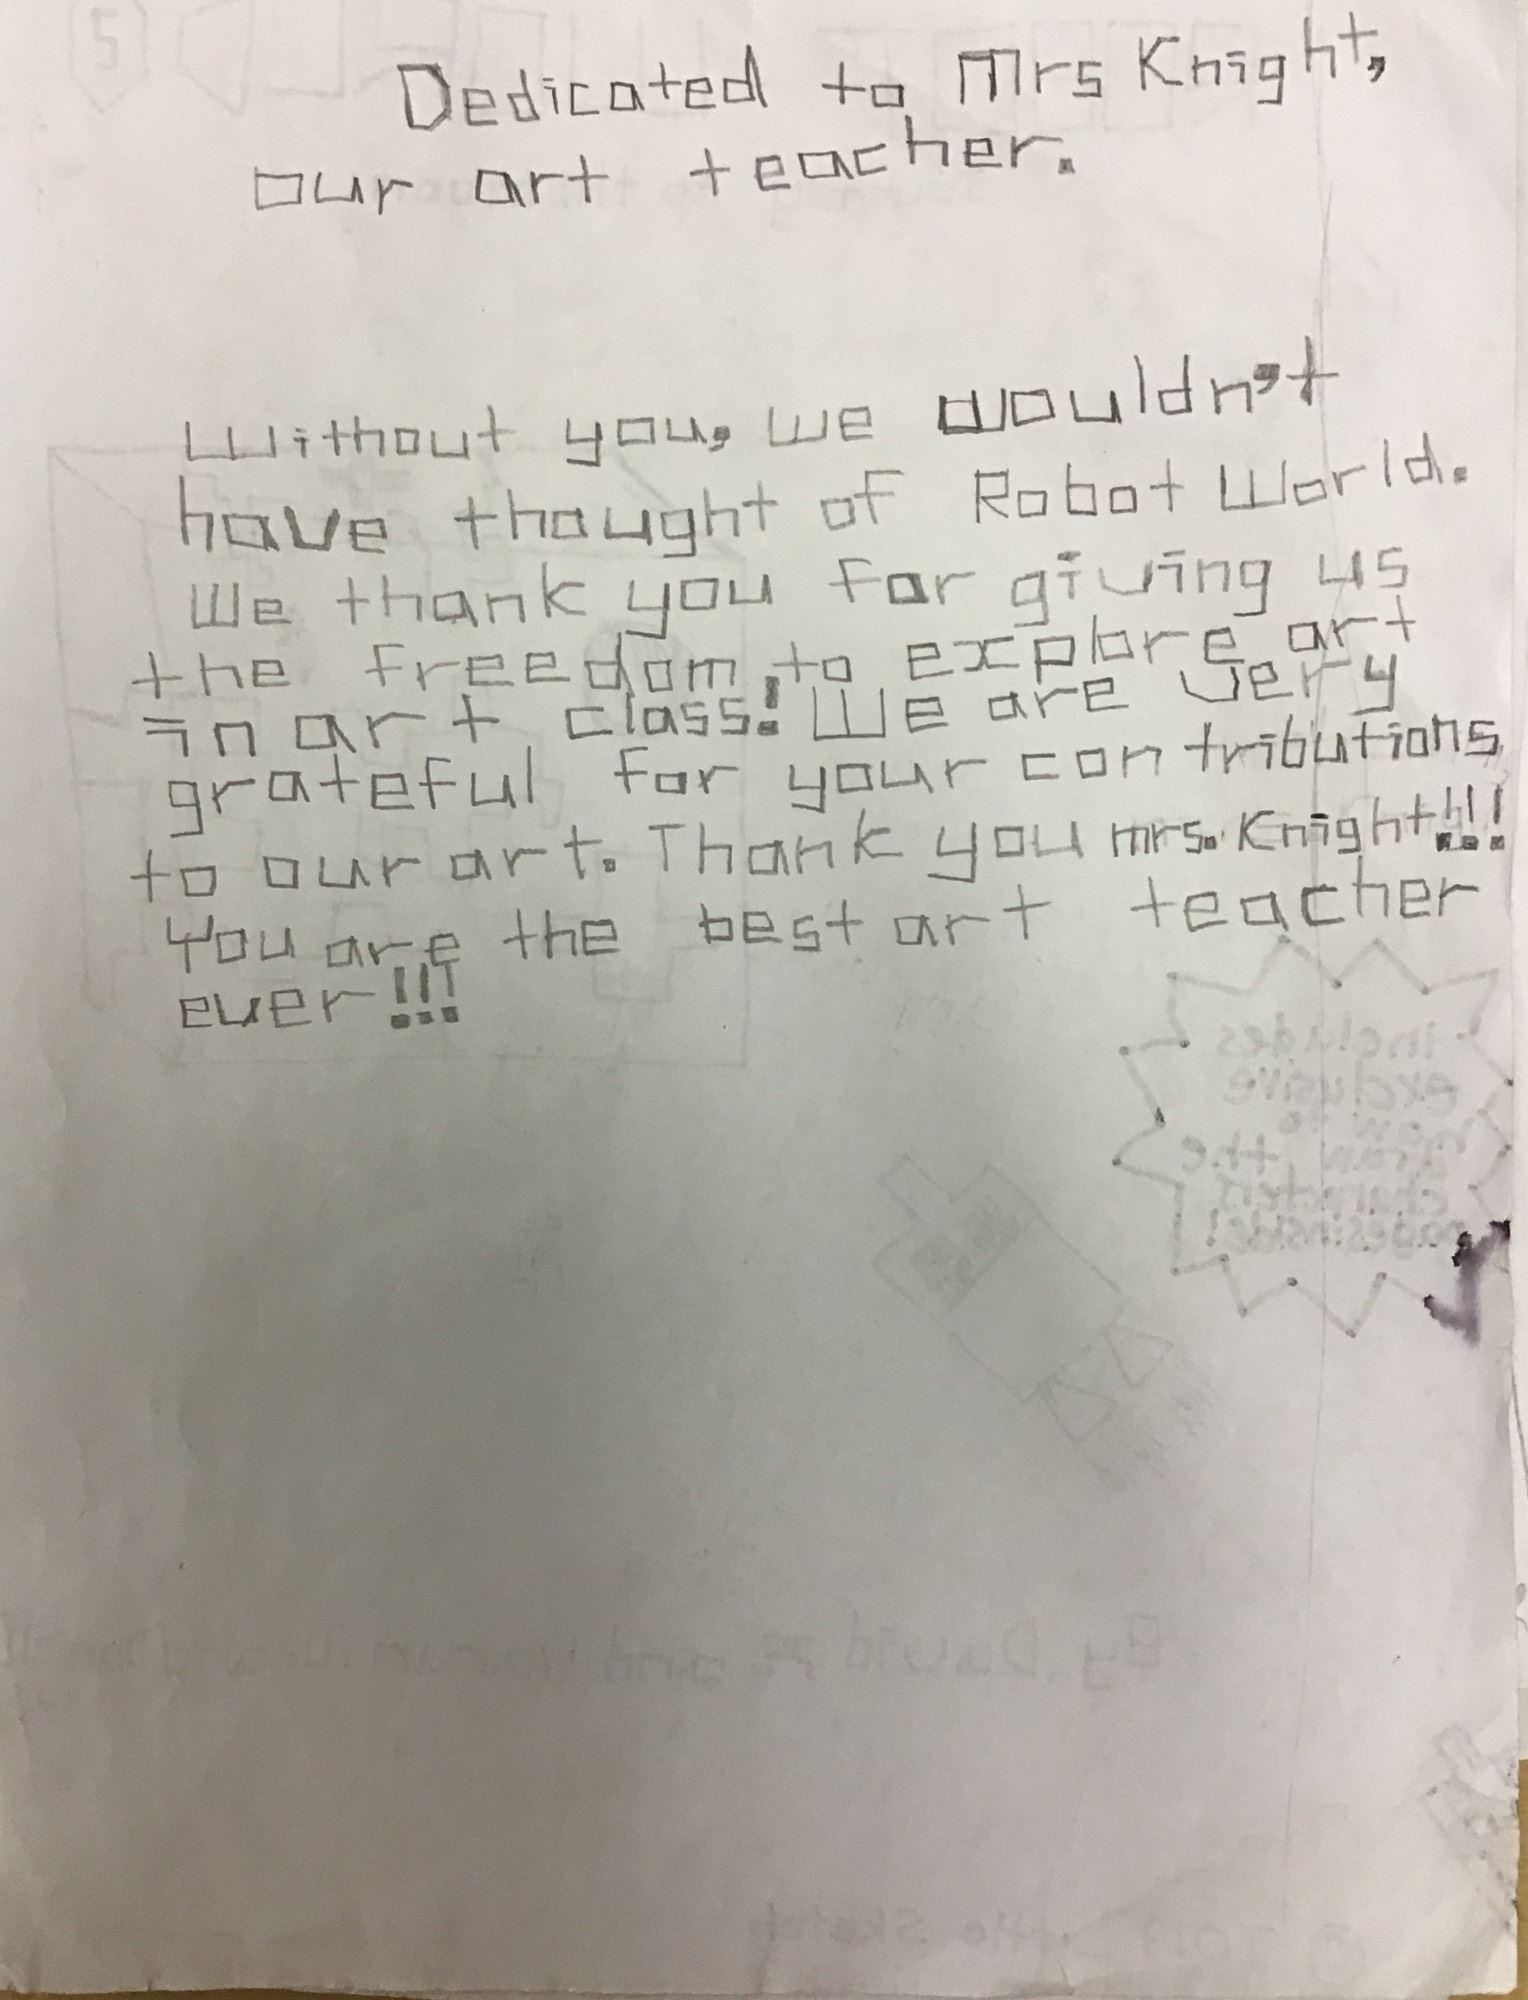 Dedicated to Mrs Knight,
our art teacher.
Without you, we wouldn't
have thought of Robot World.
We thank you for giving us
the freedom to explore art
in art class! We are very
grateful for your contributions
to our art. Thank you mrs. Knight!!!
You are the best art teacher
ever!!!
includes
exclusive
how to
draw the
characters
pages inside!
By David and